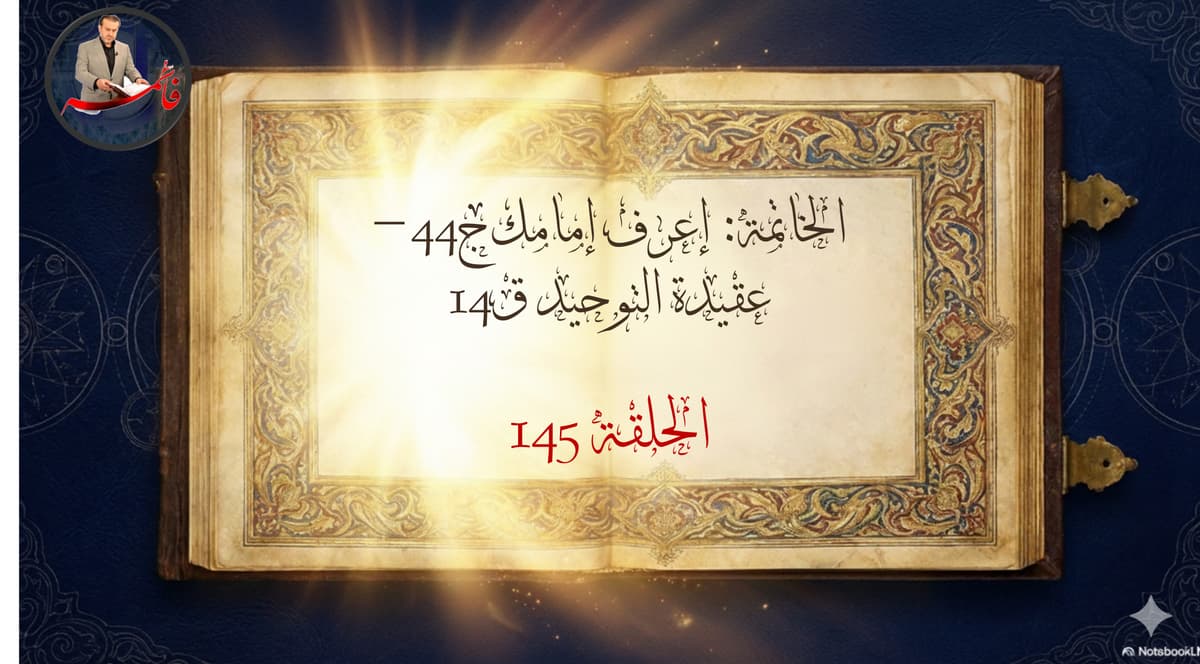 فاطمة
الخاتمة: إعرف إمامك ج44 –
عقيدة التوحيد ق14
الحلقة 145
NotsbookLM